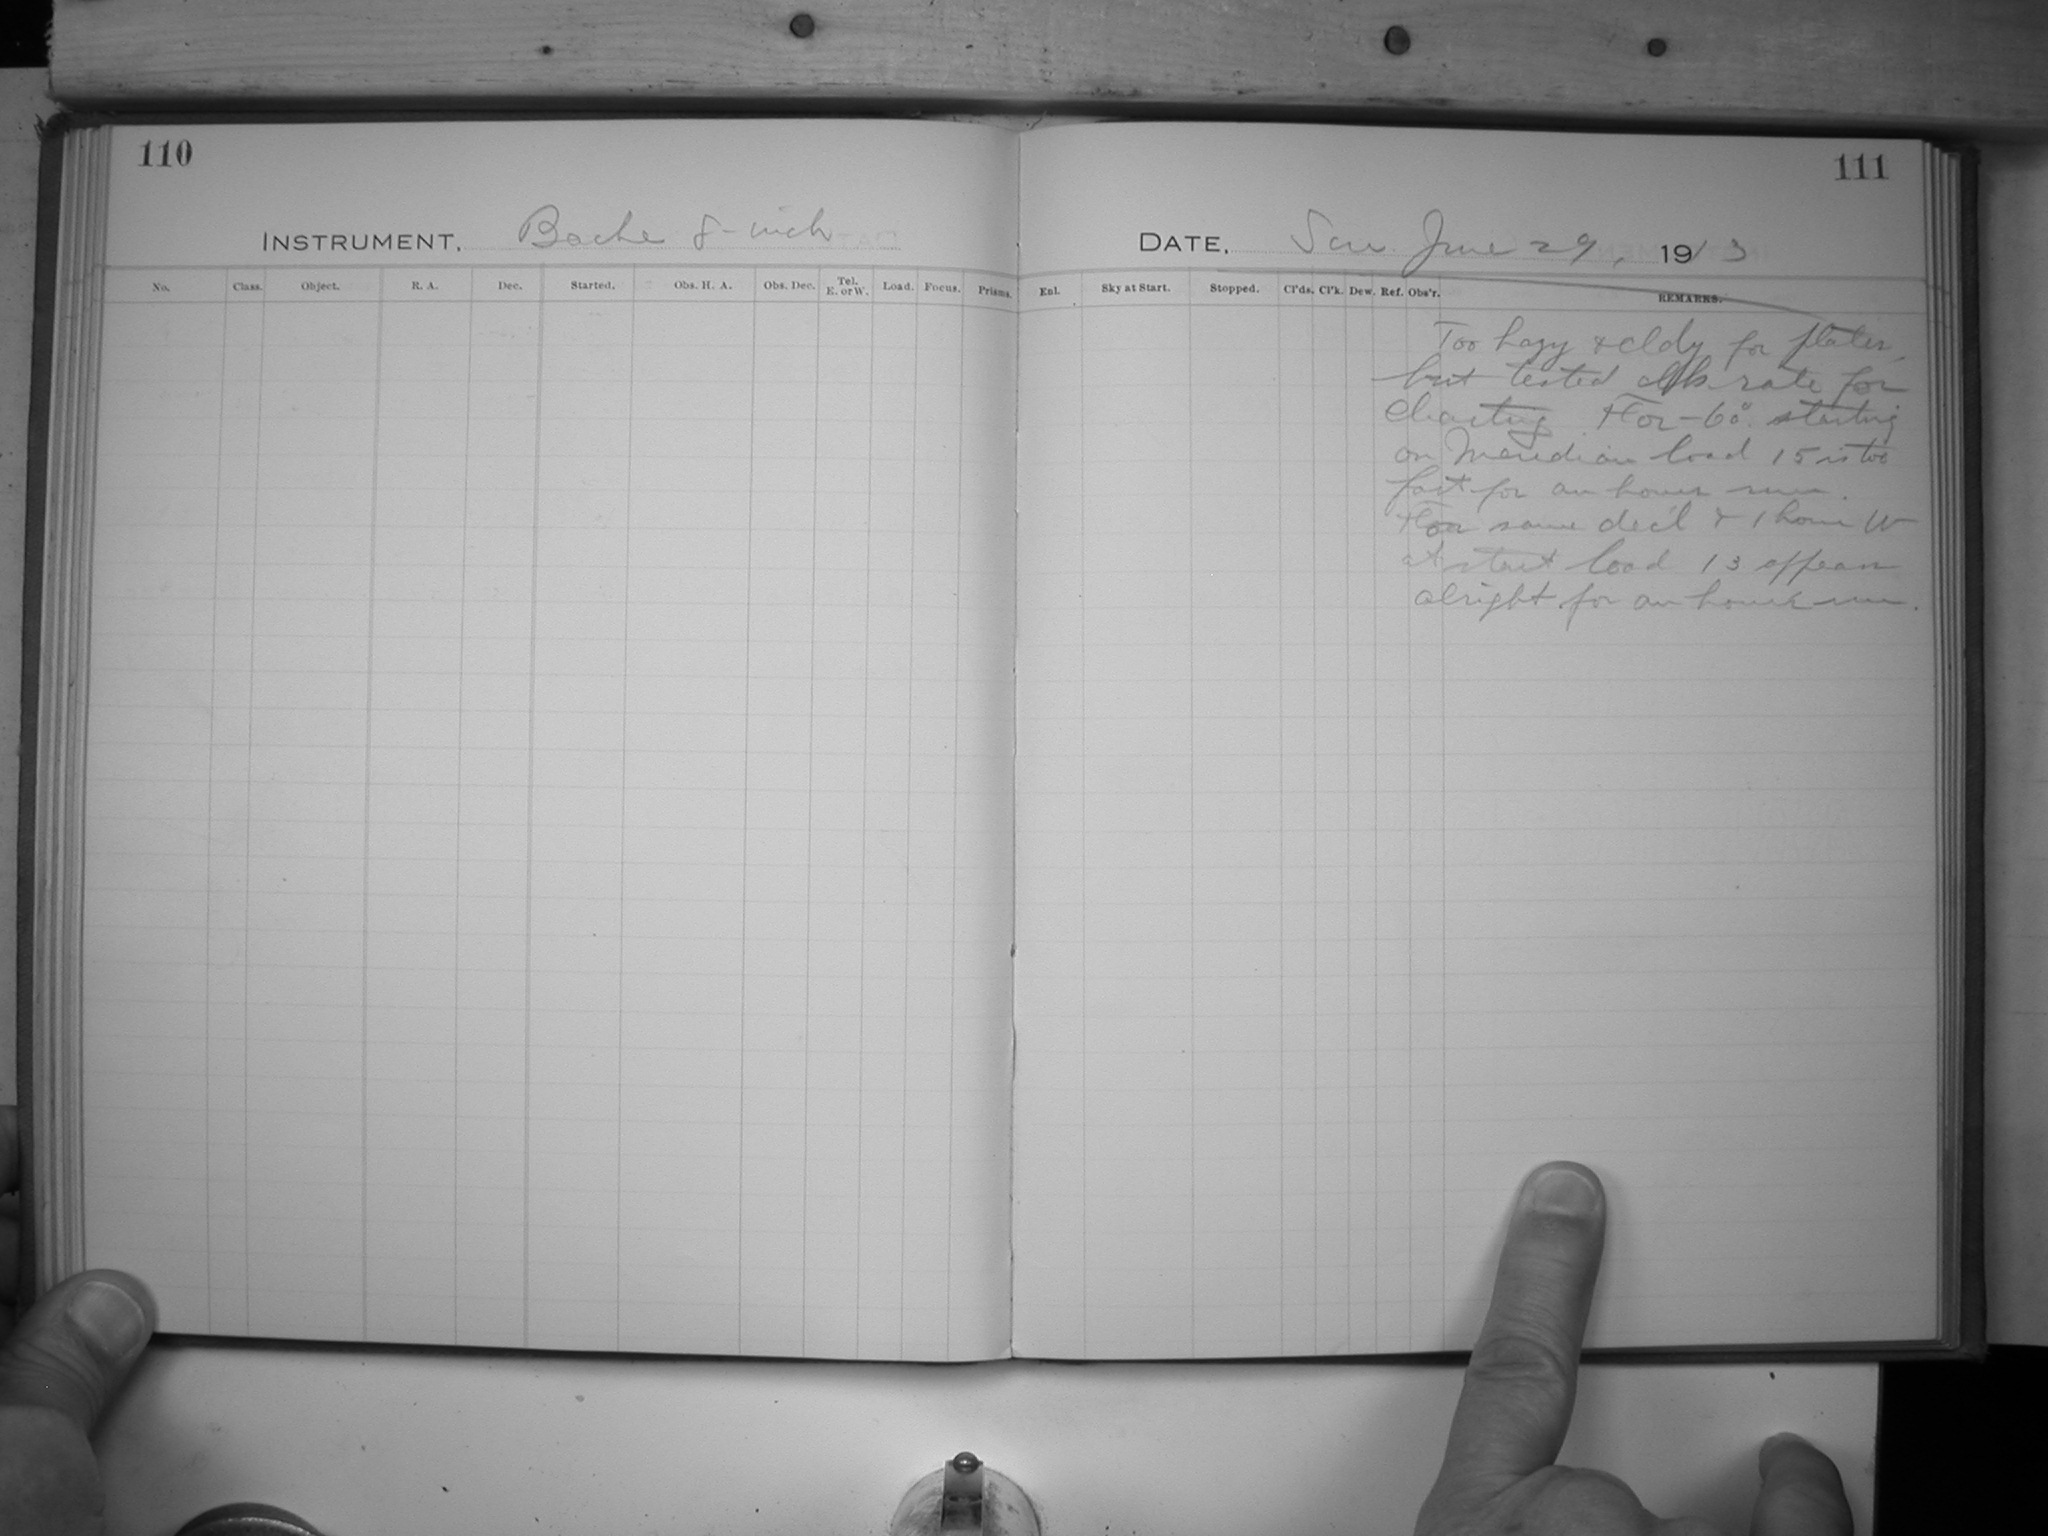 110
111
INSTRUMENT, Bache 8-inch
DATE, Sun. June 29, 1913
No. Class. Object. R. A. Dec. Started. Obs. H. A. Obs. Dec. Tel. E. or W. Load. Focus. Prisms.
Enl. Sky at Start. Stopped. Cl'ds. Cl'k. Dew. Ref. Obs'r. REMARKS.
Too hazy & cldy for plates,
but tested clk rate for
charting For -60° starting
on Meridian load 15 is too
fast for an hour run.
For same decl & 1 hour W
at start load 13 appears
alright for an hour's run.